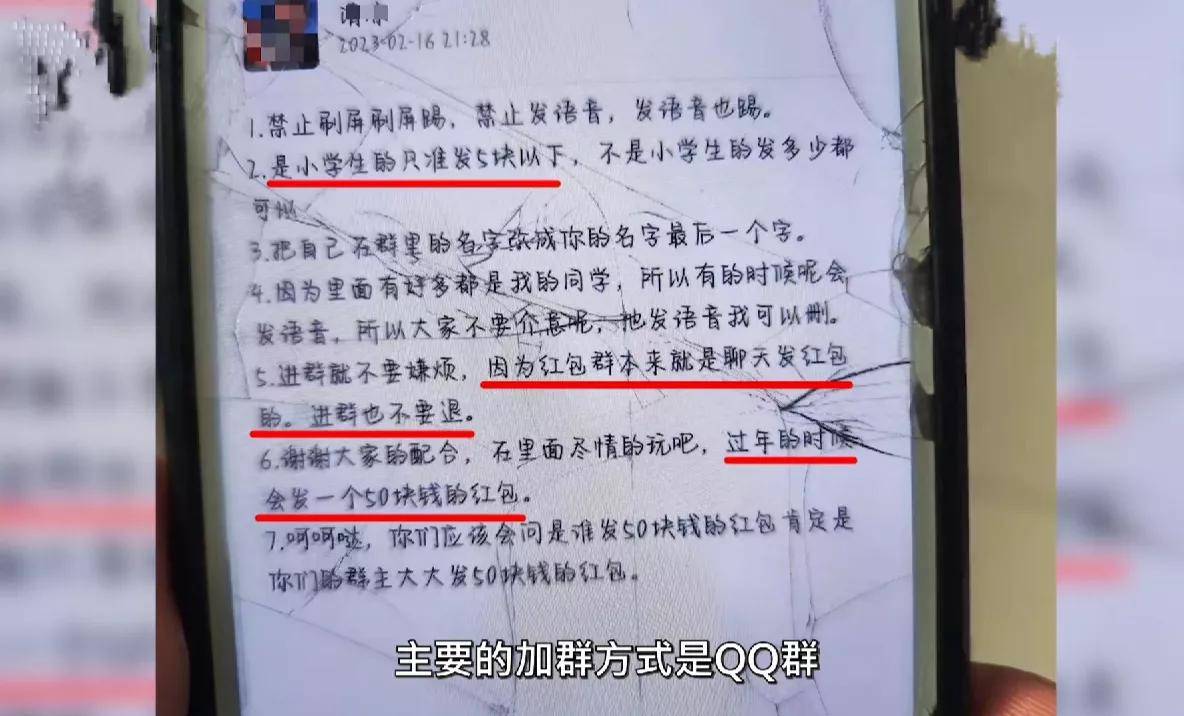 2023-02-16 21:28
1.禁止刷屏刷屏踢，禁止发语音，发语音也踢。
2.是小学生的只准发5块以下，不是小学生的发多少都
可以
3.把自己在群里的名字改成你的名字最后一个字。
4.因为里面有好多都是我的同学，所以有的时候呢会
发语音，所以大家不要介意呢，他发语音我可以删。
5.进群就不要嫌烦，因为红包群本来就是聊天发红包
的。进群也不要退。
6.谢谢大家的配合，在里面尽情的玩吧，过年的时候
会发一个50块钱的红包。
7.呵呵哒，你们应该会问是谁发50块钱的红包肯定是
你们的群主大大发50块钱的红包。
主要的加群方式是QQ群